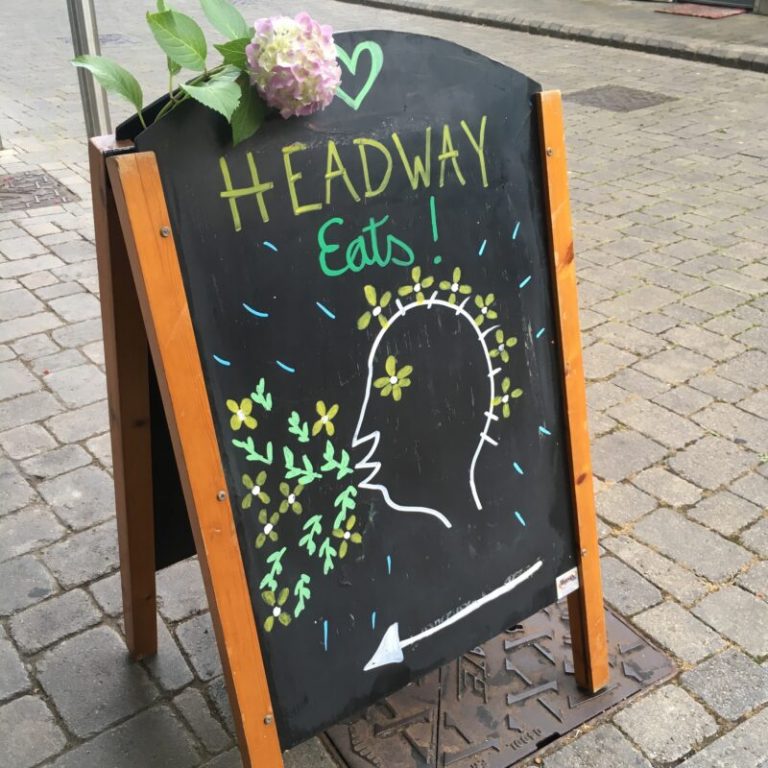 HEADWAY
Eats!